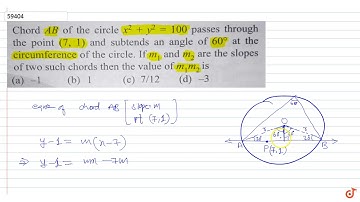 59404
Chord AB of the circle x² + y² = 100 passes through
the point (7, 1) and subtends an angle of 60° at the
circumference of the circle. If m₁ and m₂ are the slopes
of two such chords then the value of m₁m₂ is
(a) –1 (b) 1 (c) 7/12 (d) –3
chord AB [slope m
pt (7,1)
y-1 = m(x-7)
⇒ y-1 = mx -7m
60°
O
A
B
P(7,1)